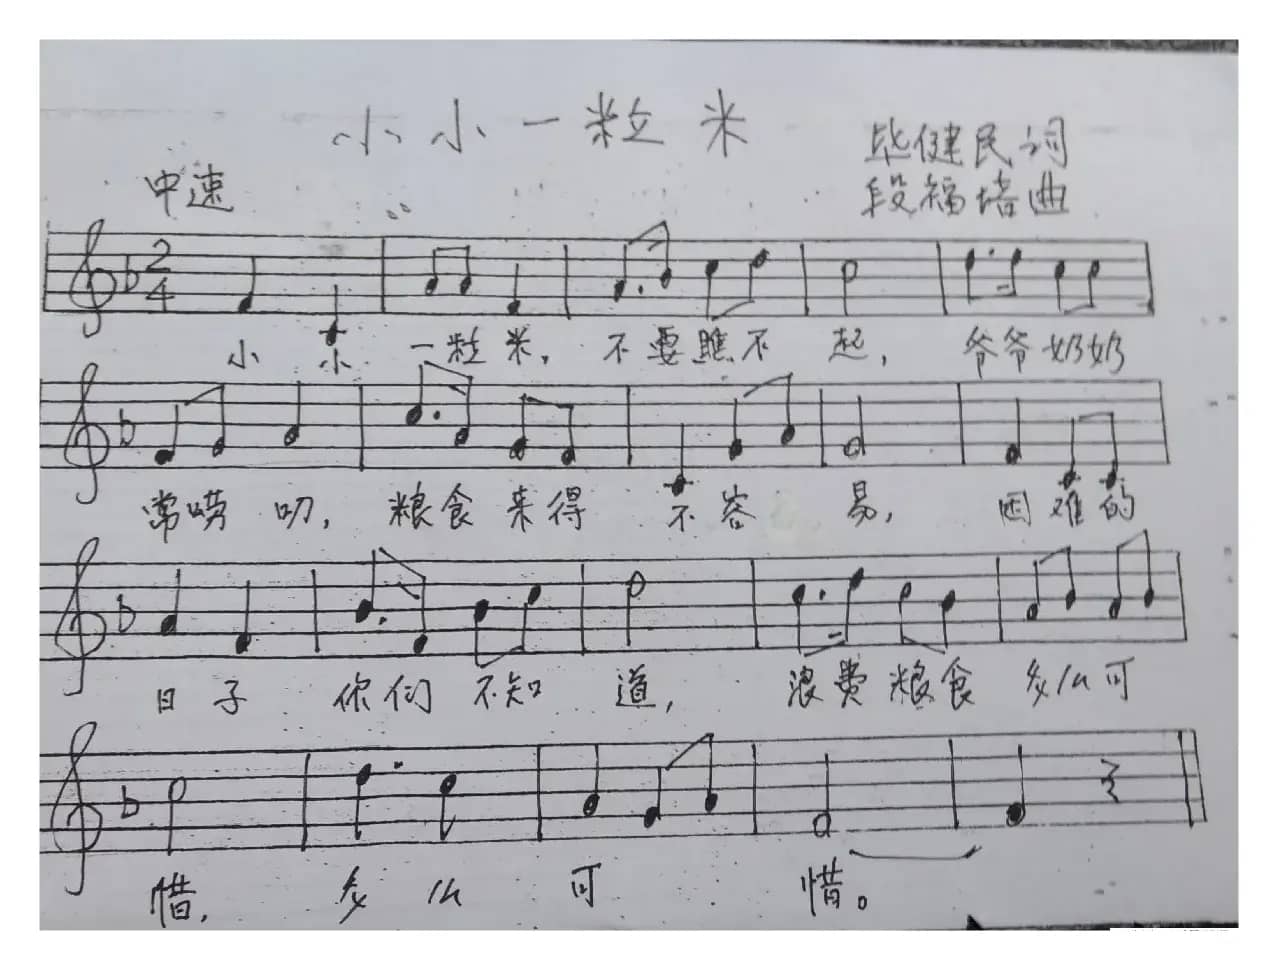 小小一粒米
毕健民词
中速
段福培曲
2
4
小 小 一粒米, 不要瞧不起, 爷爷奶奶
常唠叨, 粮食来得不容易, 困难的
日子 你们不知道, 浪费粮食多么可
惜, 多么可惜。